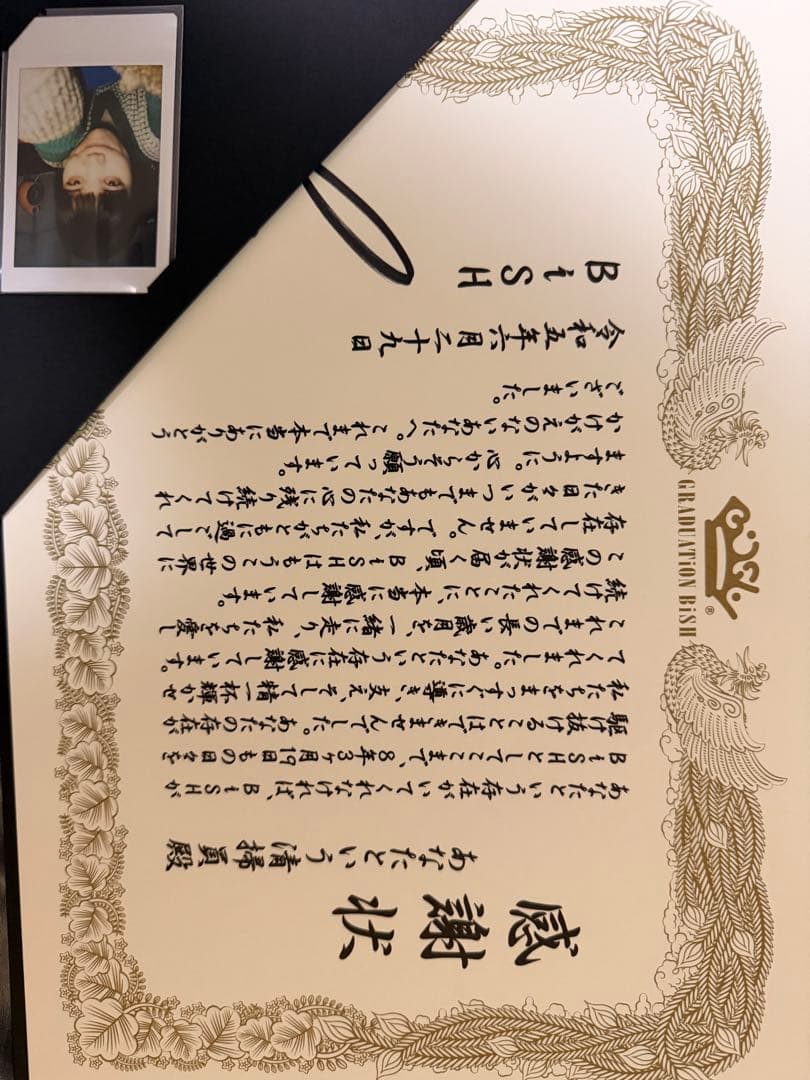 GRADUATiON BiSH
®
感謝状
あなたという清掃員殿
あなたという存在がいてくれなければ、BiSHが
BiSHとしてここまで、8年3ヶ月19日もの日々を
駆け抜けることはできませんでした。あなたの存在が
私たちをまっすぐに導き、支え、そして精一杯輝かせ
てくれました。あなたという存在に感謝しています。
これまでの長い歳月を、一緒に走り、私たちを愛し
続けてくれたことに、本当に感謝しています。
この感謝状が届く頃、BiSHはもうこの世界に
存在していません。ですが、私たちがともに過ごして
きた日々がいつまでもあなたの心に残り続けてくれ
ますように。心からそう願っています。
かけがえのないあなたへ。これまで本当にありがとう
ございました。
令和五年六月二十九日
BiSH